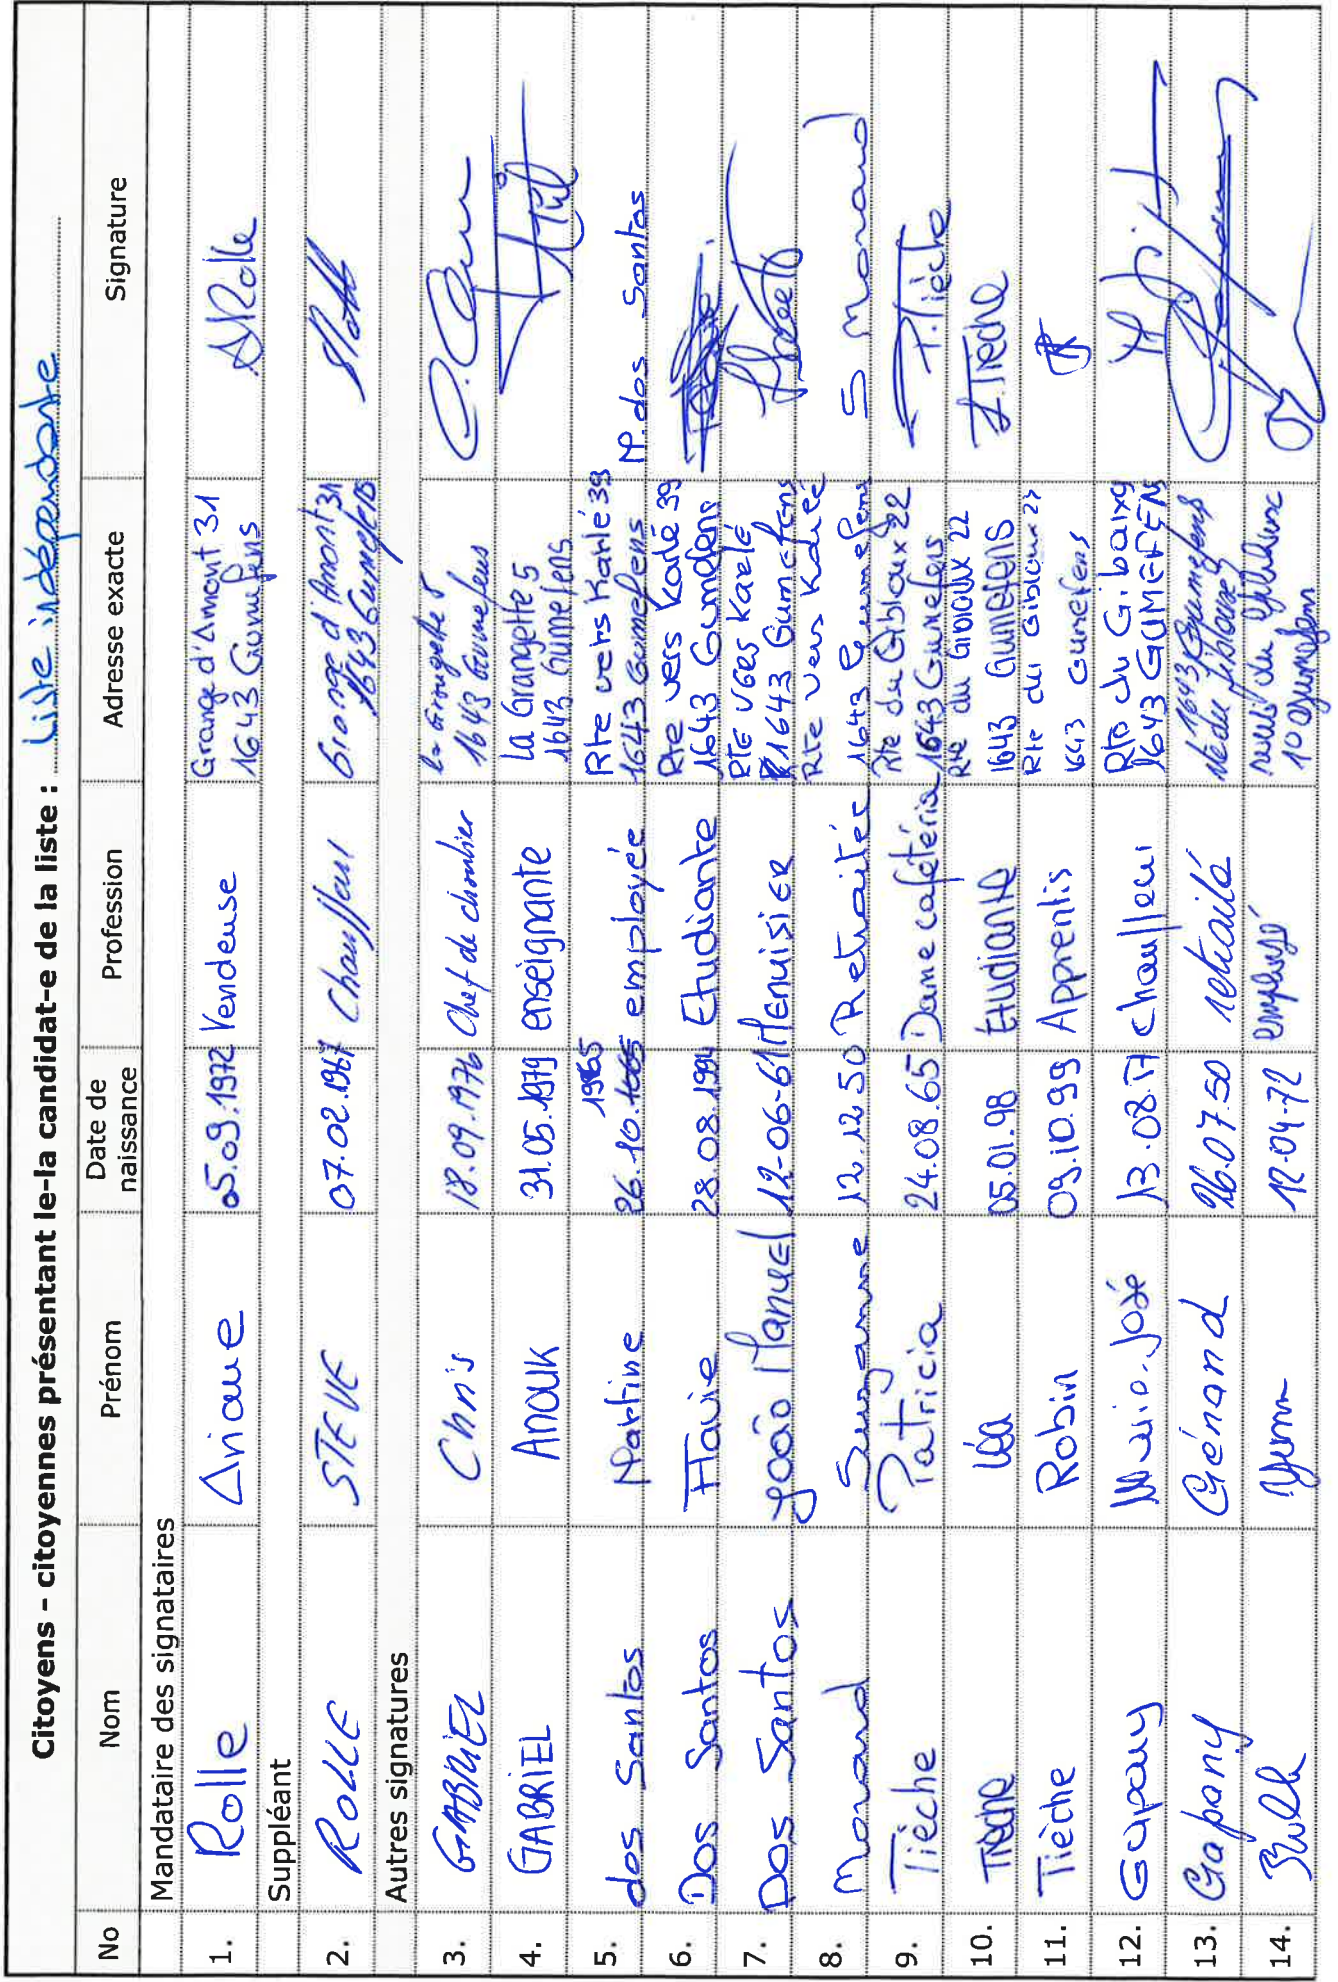 Citoyens - citoyennes présentant le-la candidat-e de la liste : Liste indépendante
No Nom Prénom Date de naissance Profession Adresse exacte Signature
Mandataire des signataires
1. Rolle Ariane 05.09.1972 Vendeuse Grange d'Amont 31 1643 Gumefens ARolle
Suppléant
2. ROLLE STEVE 07.02.1967 Chauffeur Grange d'Amont 31 1643 Gumefens
Autres signatures
3. GABRIEL Chris 18.09.1976 Chef de chantier La Grangette 5 1643 Gumefens
4. GABRIEL ANOUK 31.05.1979 enseignante La Grangette 5 1643 Gumefens
5. dos Santos Martine 26.10.1965 employée Rte vers Karlé 39 1643 Gumefens M. dos Santos
6. Dos Santos Flavie 28.08.1994 Etudiante Rte vers Karlé 39 1643 Gumefens
7. Dos Santos João Manuel 12-06-61 Menuisier Rte vers Karlé 1643 Gumefens
8. Monard Suzanne 12.12.50 Retraitée Rte vers Karlé 1643 Gumefens S Monard
9. Tièche Patricia 24.08.65 Dame cafétéria Rte du Gibloux 22 1643 Gumefens P. Tièche
10. Tièche Léa 05.01.98 Étudiante Rte du Gibloux 22 1643 Gumefens L. Tièche
11. Tièche Robin 09.10.99 Apprentis Rte du Gibloux 22 1643 Gumefens
12. Gapany Marie-José 13.08.57 Chauffeur Rte du Giboux 9 1643 GUMEFENS
13. Gapany Gérard 26.07.50 retraité 1643 Gumefens
14. 12-04-72 employé